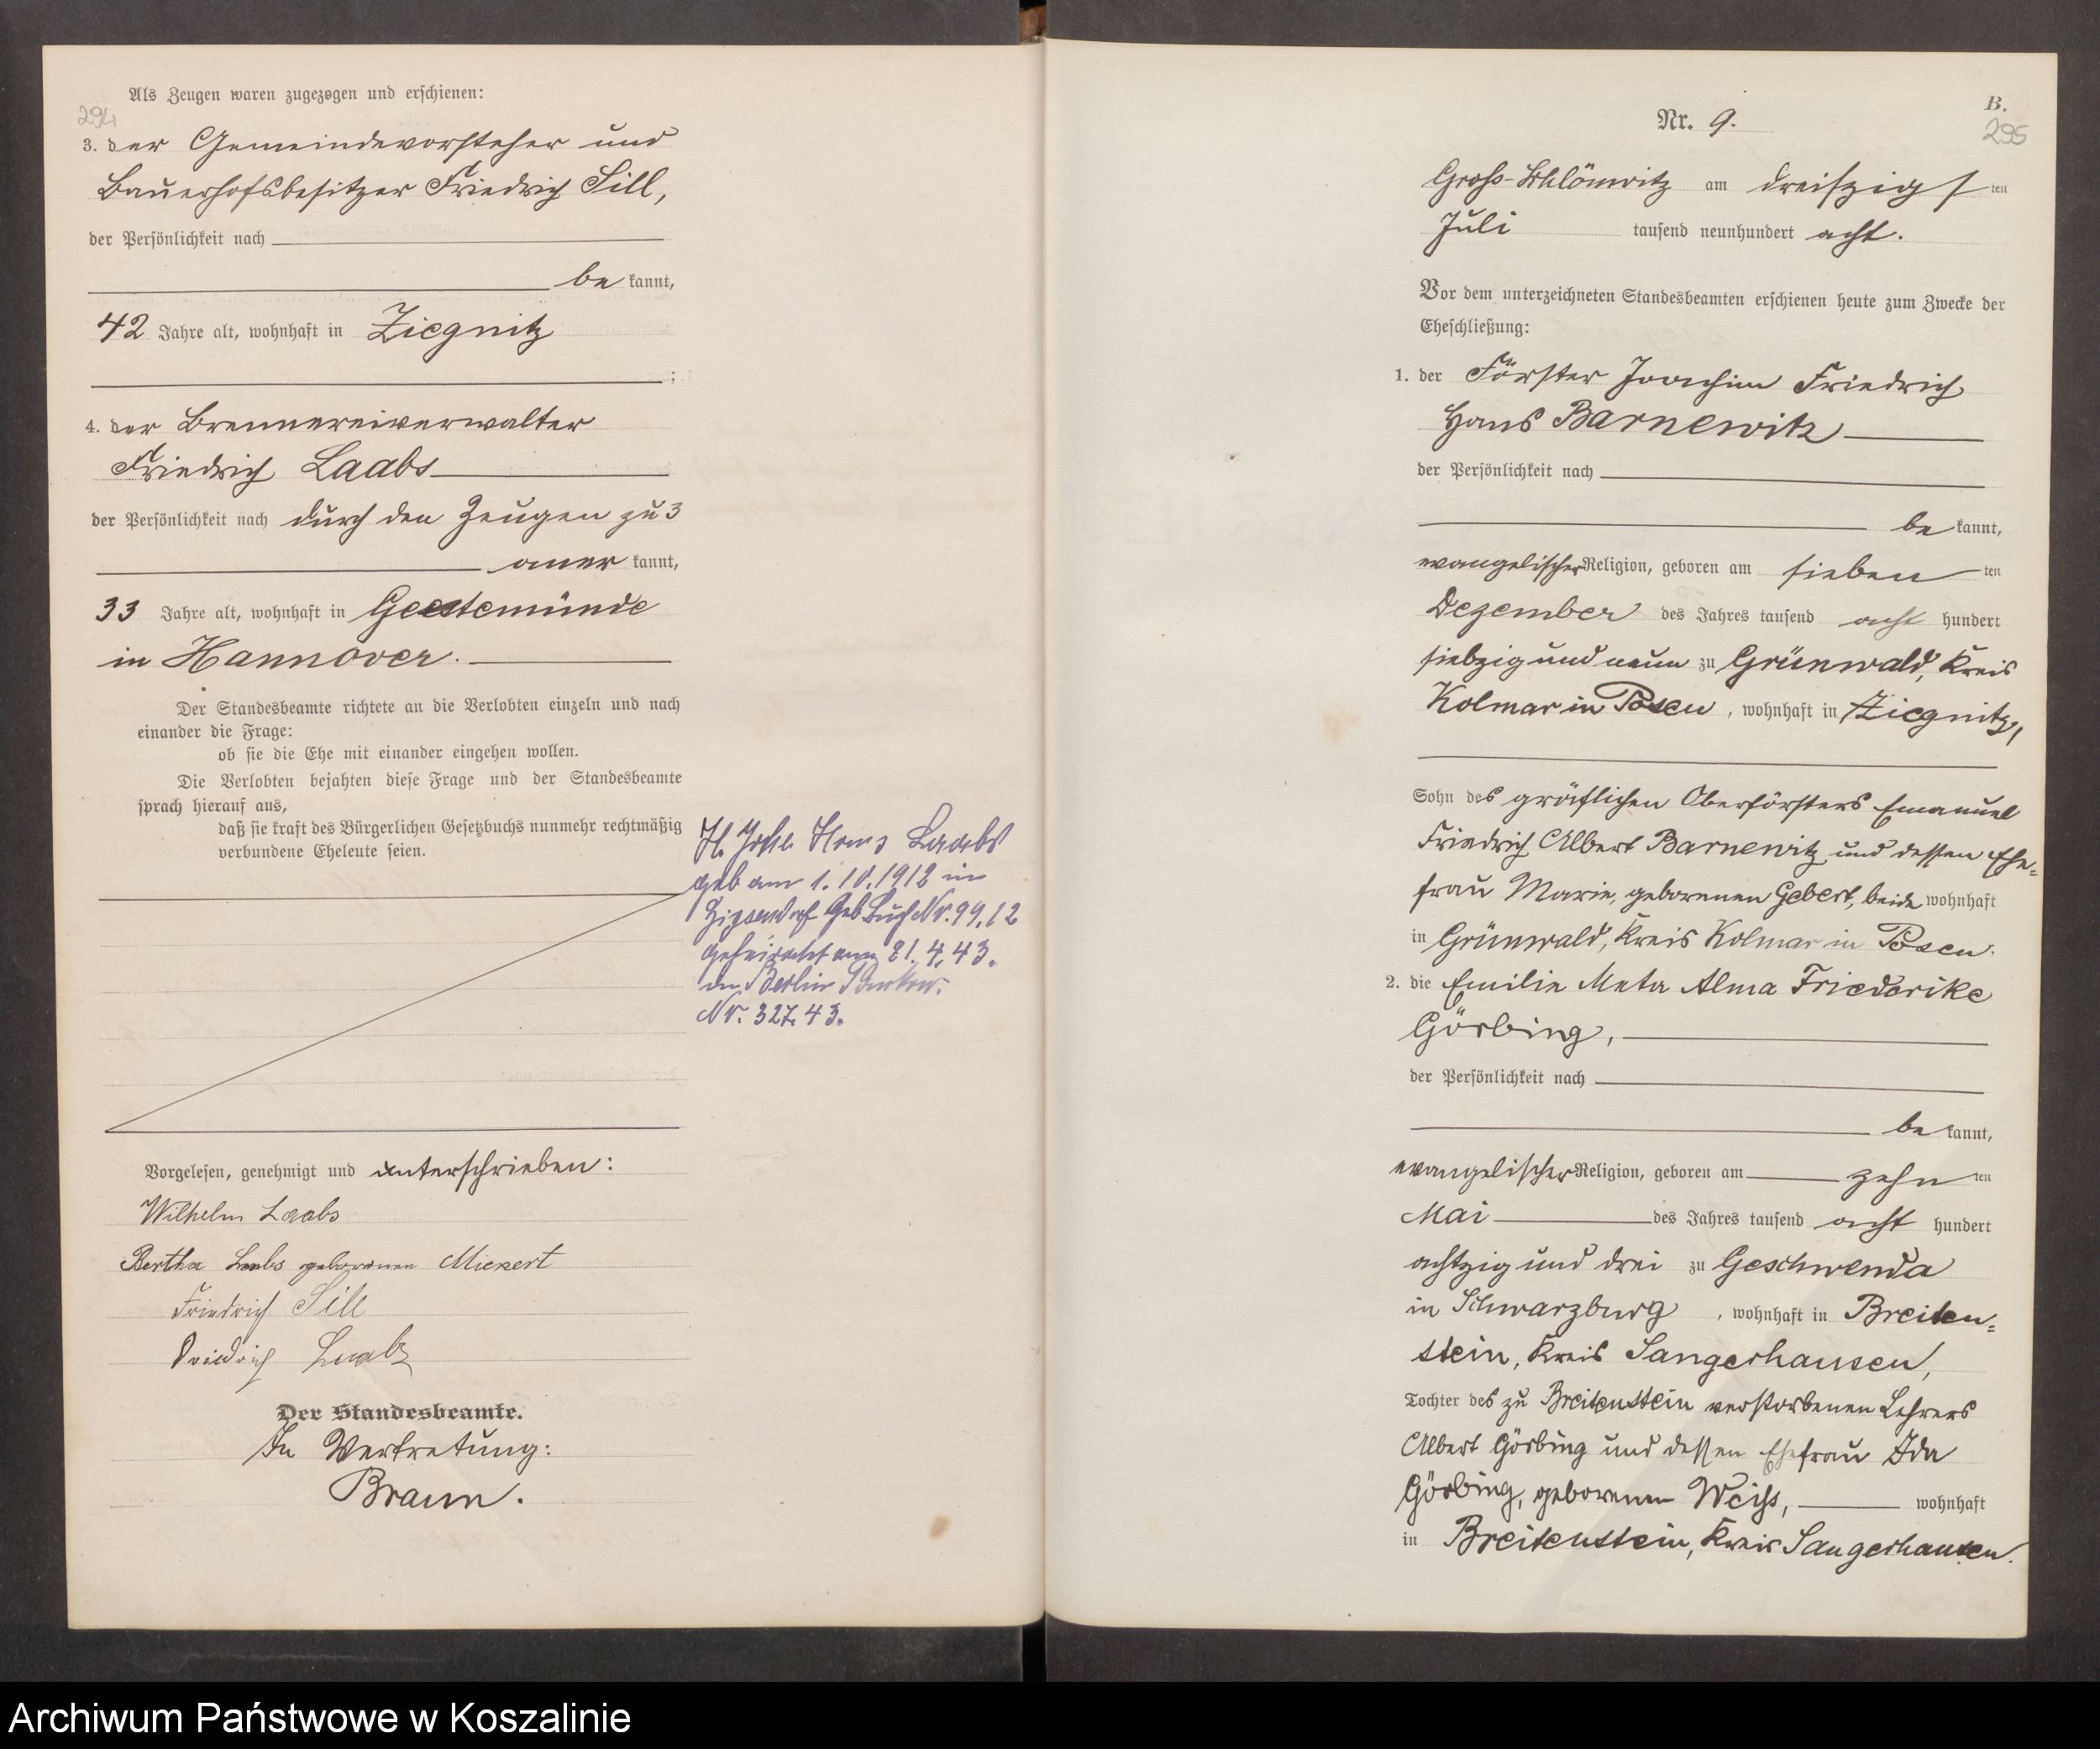 294
Als Zeugen waren zugezogen und erschienen:
3. der Gemeindevorsteher und
Bauerhofsbesitzer Friedrich Sill,
der Persönlichkeit nach
be kannt,
42 Jahre alt, wohnhaft in Ziegnitz
;
4. der Brennereiverwalter
Friedrich Laabs
der Persönlichkeit nach durch den Zeugen zu 3
aner kannt,
33 Jahre alt, wohnhaft in Geestemünde
in Hannover.
Der Standesbeamte richtete an die Verlobten einzeln und nach
einander die Frage:
ob sie die Ehe mit einander eingehen wollen.
Die Verlobten bejahten diese Frage und der Standesbeamte
sprach hierauf aus,
daß sie kraft des Bürgerlichen Gesetzbuchs nunmehr rechtmäßig
verbundene Eheleute seien.
Hans Laabs
geb am 1.10.1912 in
Geb.Buch Nr. 99.12
geheiratet am 21.4.43.
in Berlin Pankow.
Nr. 327.43.
Vorgelesen, genehmigt und unterschrieben:
Wilhelm Laabs
Bertha Laabs geborenen Mickert
Friedrich Sill
Friedrich Laabs
Der Standesbeamte.
In Vertretung:
Braun.
B.
295
Nr. 9.
Gross-Schlönwitz am dreiszigsten
Juli tausend neunhundert acht.
Vor dem unterzeichneten Standesbeamten erschienen heute zum Zwecke der
Eheschließung:
1. der Förster Joachim Friedrich
Hans Barnewitz
der Persönlichkeit nach
be kannt,
evangelischer Religion, geboren am sieben ten
Dezember des Jahres tausend acht hundert
siebzig und neun zu Grünwald, Kreis
Kolmar in Posen, wohnhaft in Ziegnitz,
Sohn des gräflichen Oberförsters Emanuel
Friedrich Albert Barnewitz und dessen Ehe=
frau Marie, geborenen Gebert, beide wohnhaft
in Grünwald, Kreis Kolmar in Posen.
2. die Emilie Meta Alma Friederike
Görbing,
der Persönlichkeit nach
be kannt,
evangelischer Religion, geboren am zehn ten
Mai des Jahres tausend acht hundert
achtzig und drei zu Geschwenda
in Schwarzburg, wohnhaft in Breiten=
stein, Kreis Sangerhausen,
Tochter des zu Breitenstein verstorbenen Lehrers
Albert Görbing und dessen Ehefrau Ida
Görbing, geborenen Weiss, wohnhaft
in Breitenstein, Kreis Sangerhausen.
Archiwum Państwowe w Koszalinie